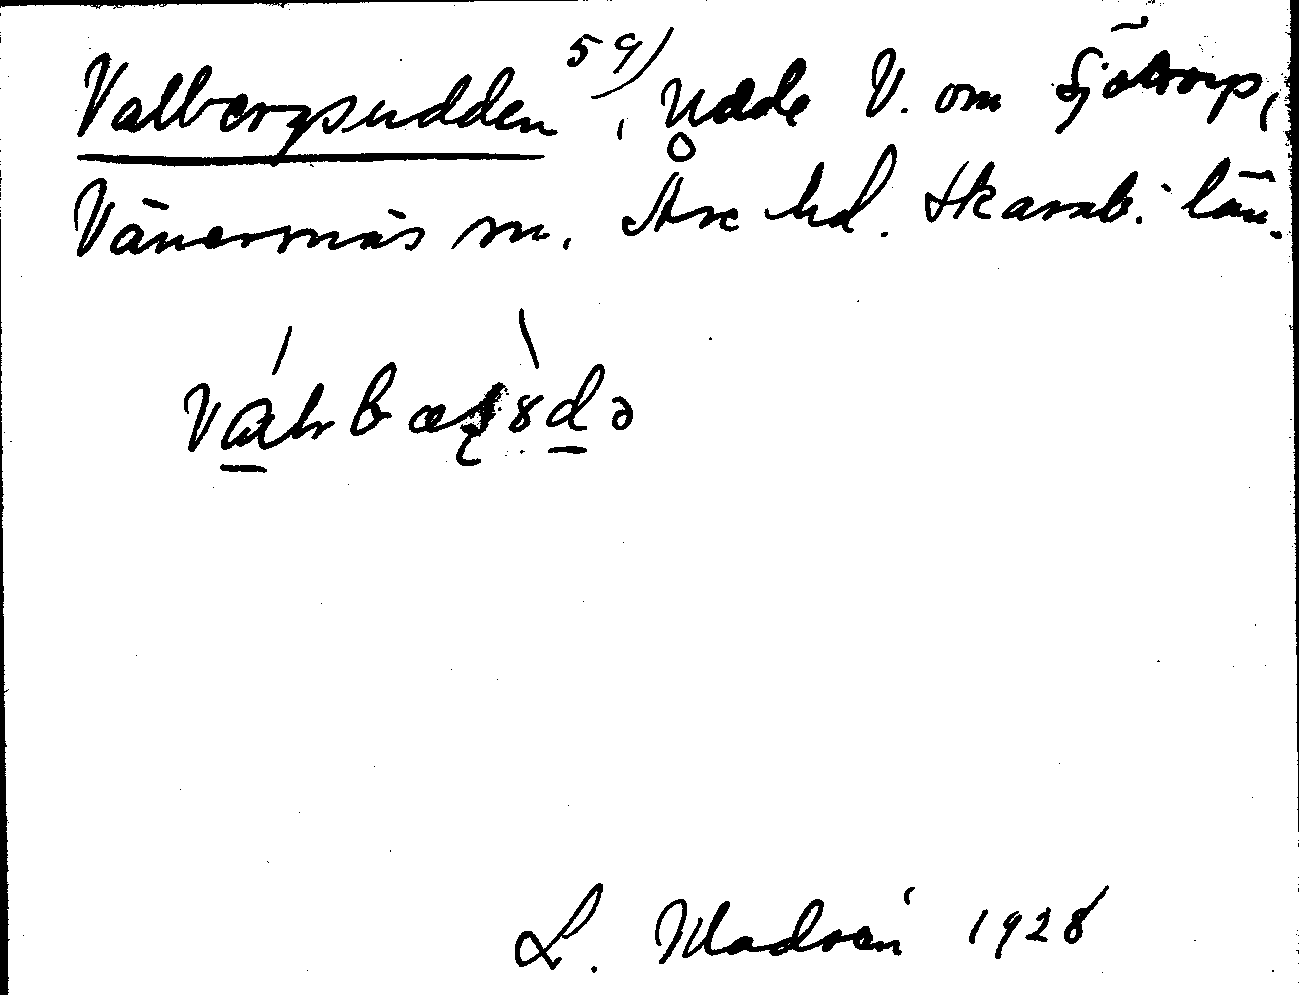 Valbergsudden 59), udde V. om Sjötorp,
Vänersnäs sn. Åse hd. Skarab. län.
L. Modéen 1928